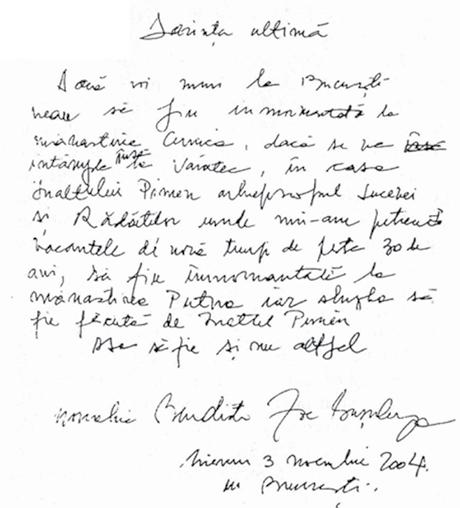 Dorința ultimă
Dacă voi muri la București
vreau să fiu înmormântată la
mănăstirea Cernica, dacă se va
întâmpla însă la Văratec, în casa
Înaltului Pimen arhiepiscopul Sucevei
și Rădăuților unde mi-am petrecut
vacanțele de vară timp de peste 30 de
ani, să fiu înmormântată la
mănăstirea Putna iar slujba să
fie făcută de Înaltul Pimen
Așa să fie și nu altfel
Benedicta Zoe Bușulenga
Miercuri 3 noiembrie 2004.
în București.